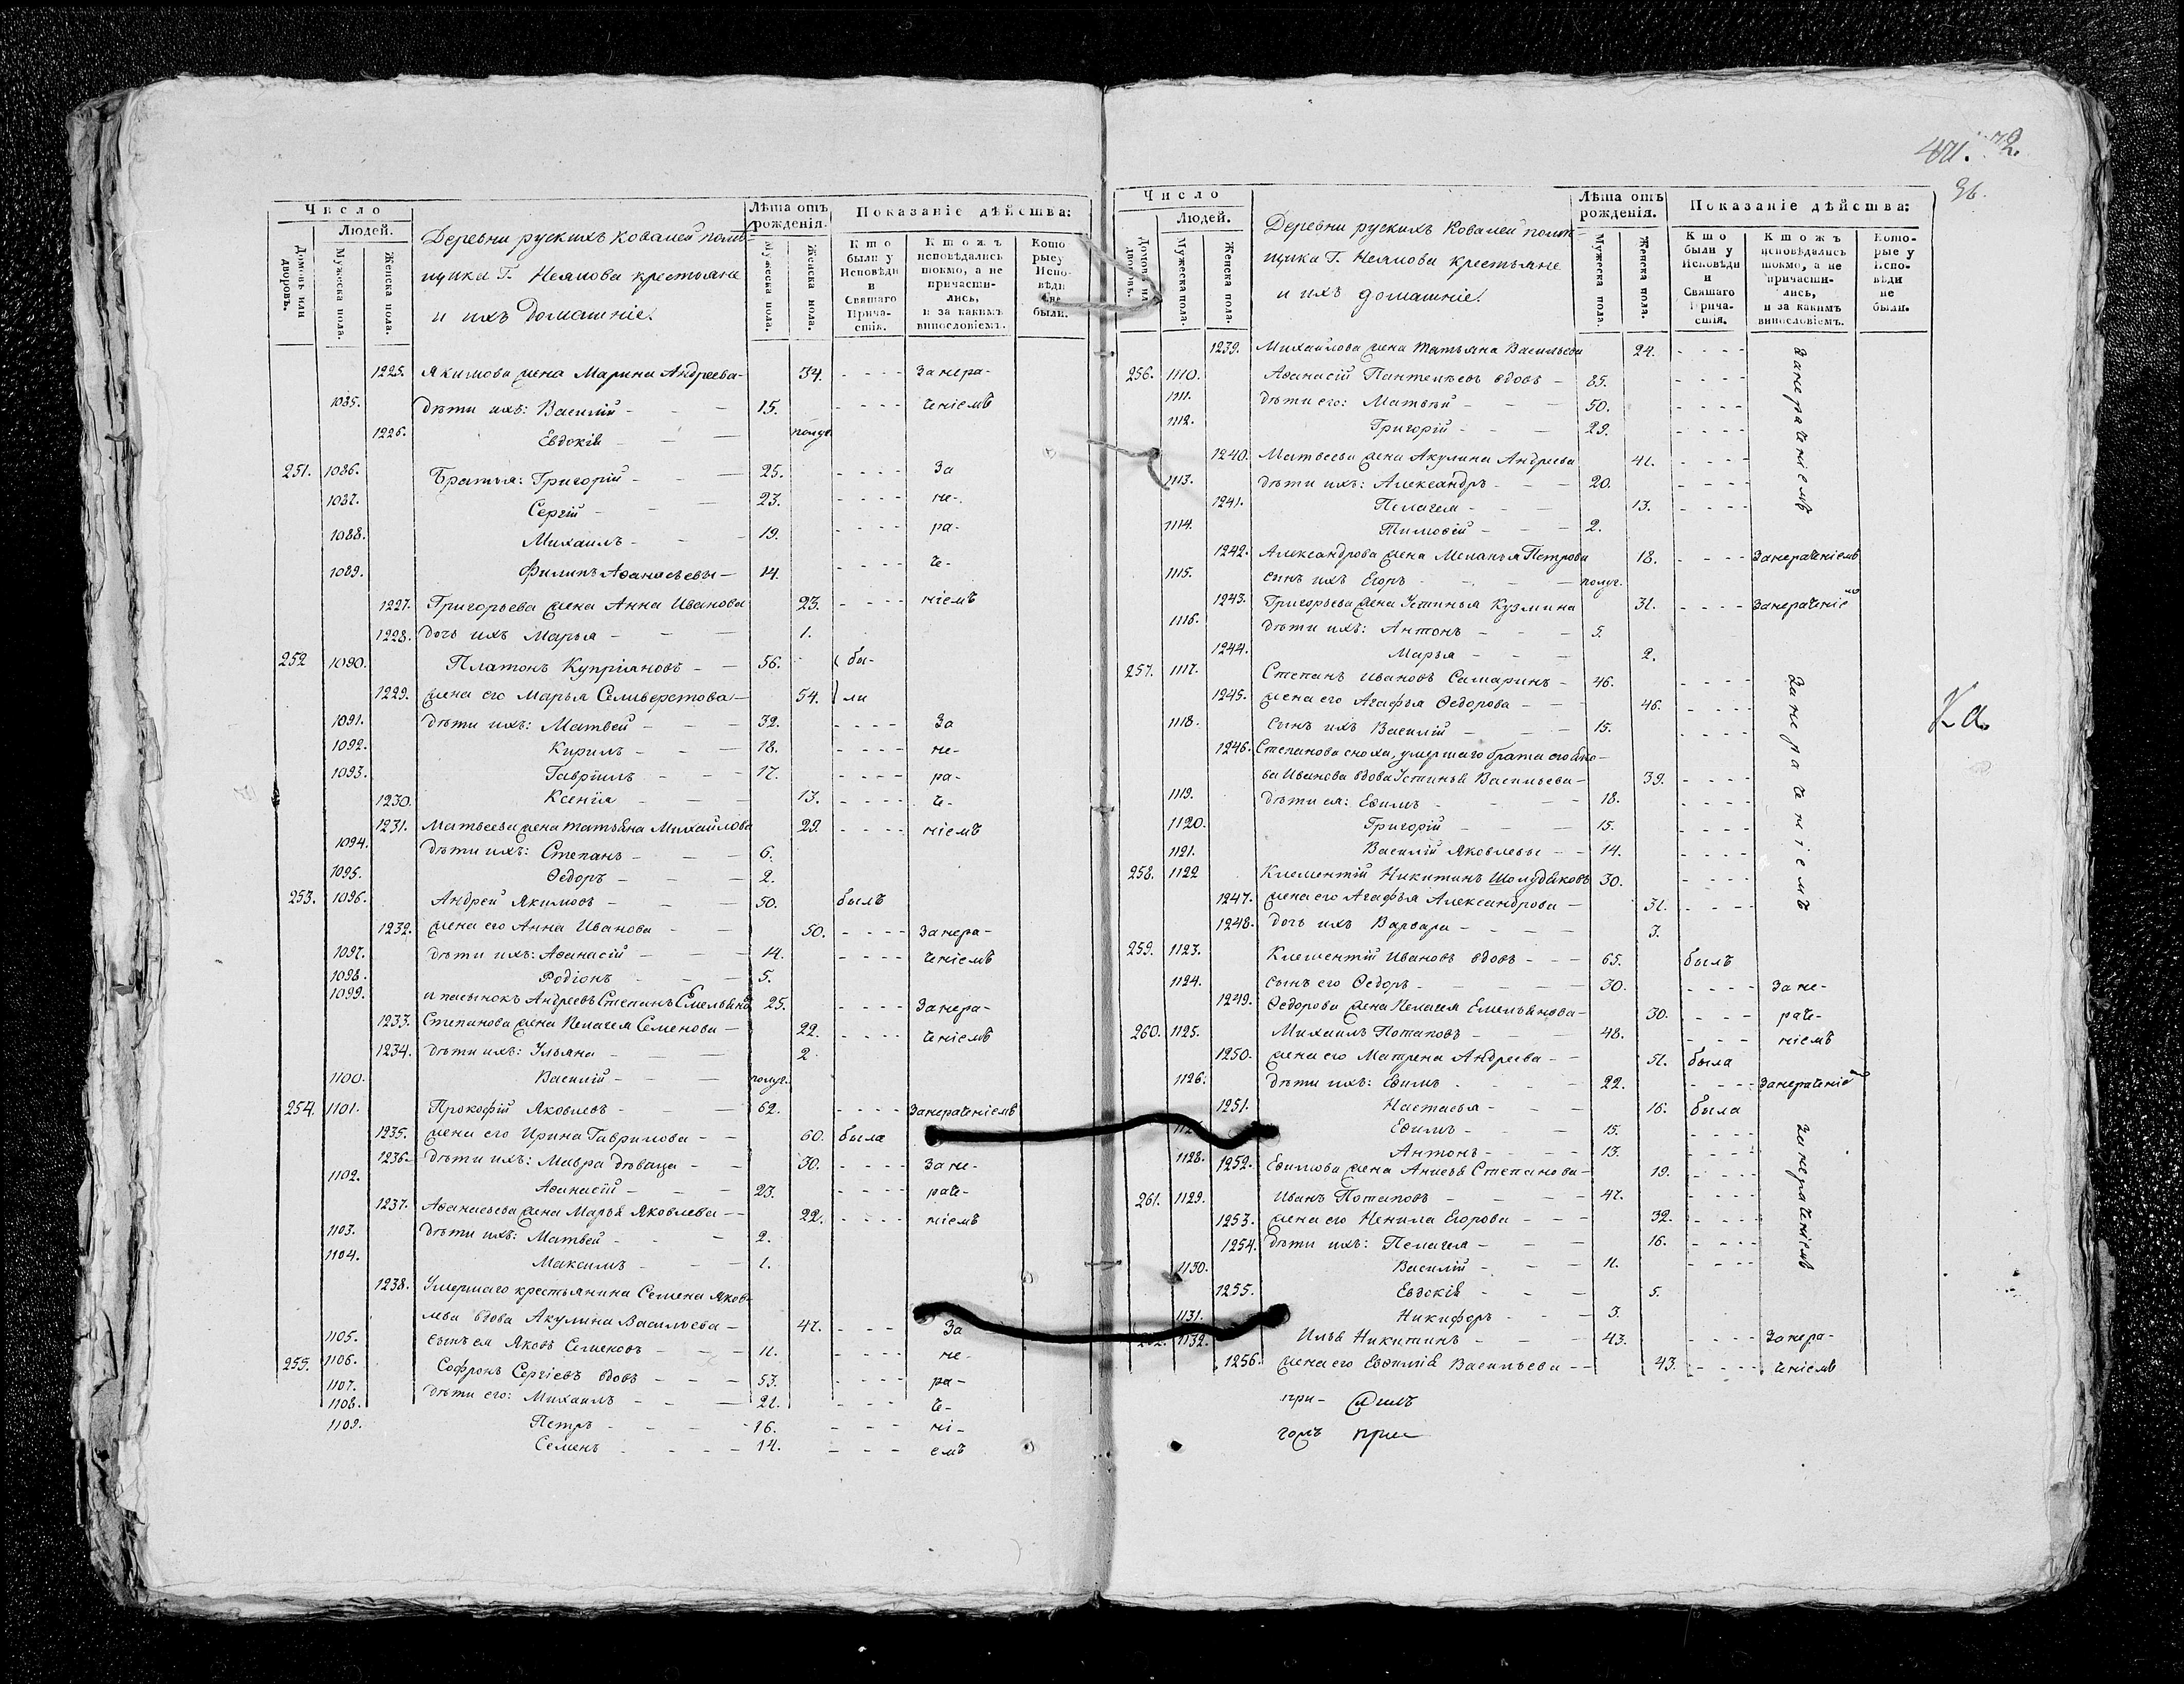 Число
Людей.
Домовъ или дворовъ.
Мужеска пола.
Женска пола.
Деревни рускихъ Ковалей поме-
щика Г. Неялова крестьяне
и ихъ Домашніе.
Лѣта отъ рожденія.
Мужеска пола.
Женска пола.
Показаніе дѣйства:
Кто были у Исповѣди и Святаго Прича-стія.
Ктожъ исповѣдались токмо, а не причасти-лись, и за какимъ винословіемъ.
Кото рые у Испо-вѣди не были.
1225. Якимова жена Марина Андреева - 34. - - - - Занера-
1085. дѣти ихъ: Василій - - - 15. - - - - ченіемъ
1226. Евдокія - - - полуг.
251. 1086. Братья: Григорій - - - 25. - - - - За
1087. Сергій - - - 23. - - - - не-
1088. Михаилъ - - - 19. - - - - ра-
1089. Филипъ Аѳанасьевы - 14. - - - - че-
1227. Григорьева жена Анна Иванова 23. - - - - ніемъ
1228. дочь ихъ Марья - - - 1.
252 1090. Платонъ Купріяновъ - - 56. бы-
1229. жена его Марья Селиверстова - 54. ли
1091. дѣти ихъ: Матвей - - - 32. - - - - За
1092. Кирилъ - - - 18. - - - - не-
1093. Гаврїилъ - - - 17. - - - - ра-
1230. Ксенїя - - - 13. - - - - че-
1231. Матвеева жена татьяна Михайлова 29. - - - - ніемъ
1094. дѣти ихъ: Степанъ - - - 6.
1095. Ѳедоръ - - - 2.
253. 1096. Андрей Якимовъ - - - 50. былъ
1232. жена его Анна Иванова - - 50. - - - - Занера-
1097. дѣти ихъ: Аѳанасій - - - 14. - - - - ченіемъ
1098. Родіонъ - - - 5.
1099. и пасынокъ Андреевъ Степанъ Емельяновъ 25. - - - - Занера-
1233. Степанова жена Пелагея Семенова - 22. - - - - ченіемъ
1234. дѣти ихъ: Ульяна - - - 2.
1100. Василій - - - полуг.
254. 1101. Прокофій Яковлевъ - - - 62. - - - - Занераченіемъ
1235. жена его Ирина Гаврилова - - 60. была
1236. дѣти ихъ: Мавра дѣвица - - 30. - - - - Зане-
1102. Аѳанасій - - - 23. - - - - раче-
1237. Аѳанасьева жена Марья Яковлева - - 22. - - - - ніемъ
1103. дѣти ихъ: Матвей - - - 2.
1104. Максимъ - - - 1.
1238. Умершаго крестьянина Семена Яков-
лева вдова Акулина Васильева - 47. - - - - За
1105. сынъ ея Яковъ Семеновъ - - - 11. - - - - не-
255. 1106. Софронъ Сергіевъ вдовъ - - - 53. - - - - ра-
1107. дѣти его: Михаилъ - - - 21. - - - че-
1108. Петръ - - - 16. - - - ні-
1109. Семенъ - - - 14. - - - емъ
96.
Число
Людей.
Мужеска пола.
Женска пола.
Деревни рускихъ Ковалей поме-
щика Г. Неялова крестьяне
и ихъ домашніе.
Лѣта отъ рожденія.
Мужеска пола.
Женска пола.
Показаніе дѣйства:
Кто были у Исповѣди и Святаго Прича-стія.
Ктожъ исповѣдались токмо, а не причасти-лись, и за какимъ винословіемъ.
Кото-рые у Испо-вѣди не были.
1239. Михайлова жена татьяна Васильева 24. - - - -
занераченіемъ
256. 1110. Аѳанасій Пантелѣевъ вдовъ - 85. - - - -
1111. дѣти его: Матвѣй - - - 50. - - - -
1112. Григорій - - - 29. - - - -
1240. Матвеева жена Акулина Андреева 41. - - - -
1113. дѣти ихъ: Александръ - - - 20. - - - -
1241. Пелагея - - - 13. - - - -
1114. Тимоѳій - - - 2.
1242. Александрова жена Меланья Петрова 18. - - - - Занераченіемъ
1115. сынъ ихъ Егоръ - - - полуг.
1243. Григорьева жена Устинья Кузмина 31. - - - - Занераченіемъ
1116. дѣти ихъ: Антонъ - - - 5.
1244. Марья - - - 2.
257. 1117. Степанъ Ивановъ Самаринъ - 46. - - - -
занераченіемъ
Ка
1245. жена его Агафья Ѳедорова - - 46. - - - -
1118. сынъ ихъ Василій - - - 15. - - - -
1246. Степанова сноха, умершаго брата его Яко-
ва Иванова вдова Устинья Васильева - 39. - - - -
1119. дѣти ея: Ефимъ - - - 18. - - - -
1120. Григорій - - - 15. - - - -
1121. Василій Яковлевы - - 14. - - - -
258. 1122 Климентій Никитинъ Шолудяковъ 30. - - - -
1247. жена его Агафья Александрова - 31. - - - -
1248. дочь ихъ Варвара - - - 3.
259. 1123. Климентій Ивановъ вдовъ - - - 65. былъ
1124. сынъ его Ѳедоръ - - - 30. - - - - Зане-
1249. Ѳедорова жена Пелагея Емельянова - 30. - - - раче-
260. 1125. Михаилъ Потаповъ - - - 48. - - - ніемъ
1250. жена его Матрена Андреева - - 51. была
1126. дѣти ихъ: Ефимъ - - - 22. - - - - Занераченіемъ
1251. Настасья - - - 16. была
Ефимъ - - - 15. - - - -
занераченіемъ
1128. Антонъ - - - 13. - - - -
1252. Ефимова жена Анисья Степанова - 19. - - - -
261. 1129. Иванъ Потаповъ - - - 47. - - - -
1253. жена его Ненила Егорова - - - 32. - - - -
1254. дѣти ихъ: Пелагея - - - 16. - - - -
1130. Василій - - - 11. - - - -
1255. Евдокія - - - 5.
1131. Никифоръ - - - 3.
1132. Илья Никитинъ - - - 43. - - - - Занера-
1256. жена его Евфимія Васильева - - 43. - - - - ченіемъ